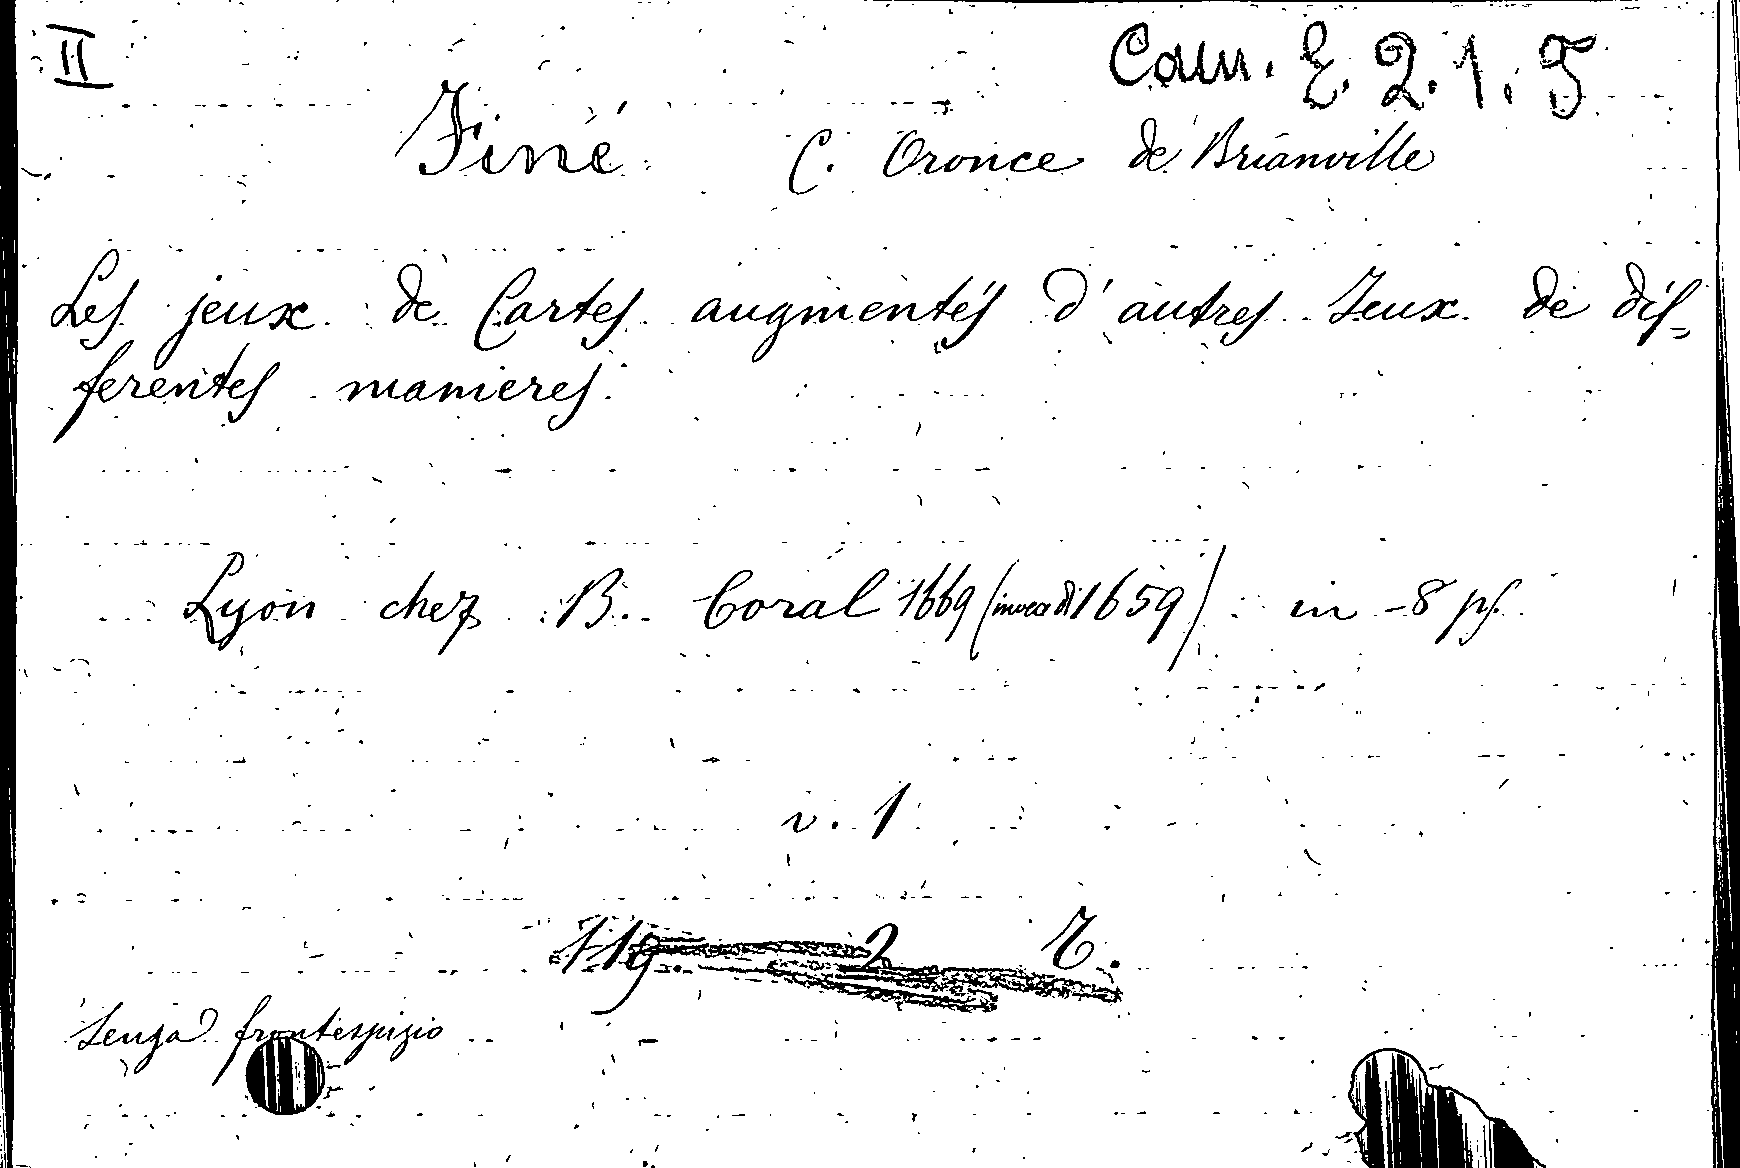 II
Cam. E. 2. 1. 5
Finé C. Oronce de Brianville
Les jeux de Cartes augmentés d'autres Jeux de dif-
ferentes manieres.
Lyon chez B. Coral 1669 (invece di 1659) in -8 pf.
v. 1
119. 2 7.
Senza frontespizio